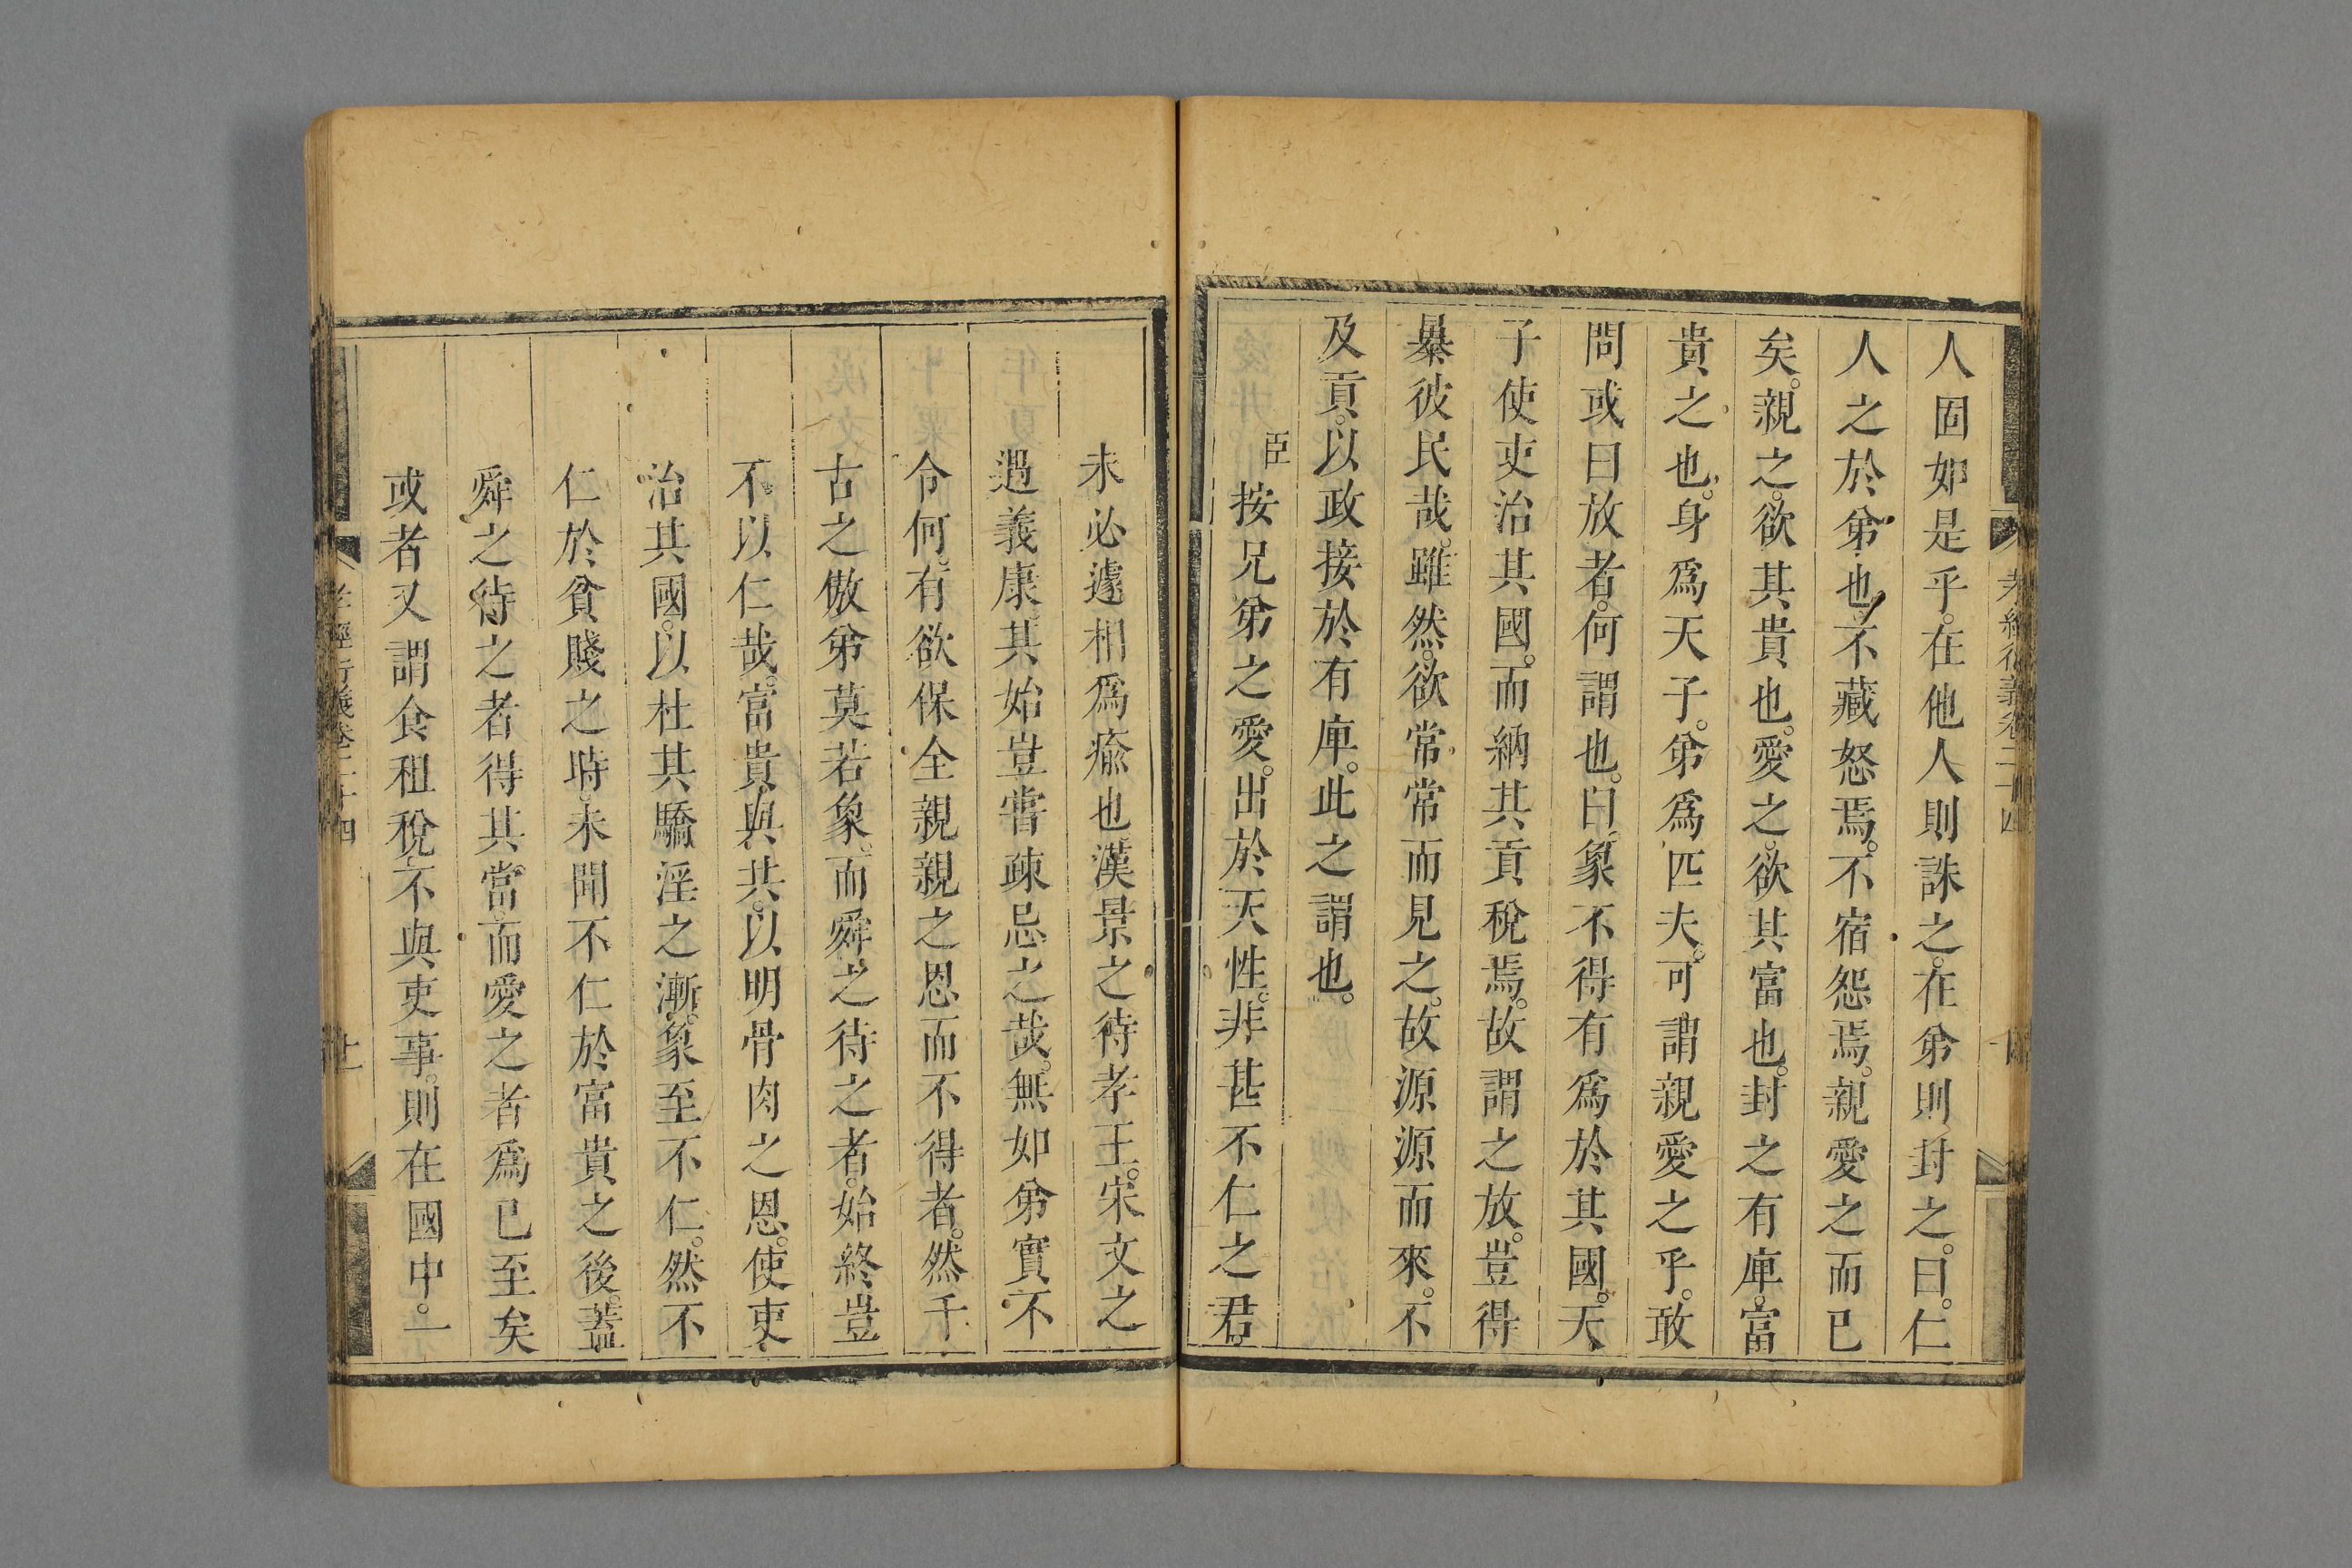 人固如是乎。在他人則誅之。在弟則封之。曰。仁
人之於弟也。不藏怒焉。不宿怨焉。親愛之而已
矣。親之。欲其貴也。愛之。欲其富也。封之有庳。富
貴之也。身爲天子。弟爲匹夫。可謂親愛之乎。敢
問或曰放者。何謂也。曰。象不得有爲於其國。天
子使吏治其國。而納其貢稅焉。故謂之放。豈得
暴彼民哉。雖然。欲常常而見之。故源源而來。不
及貢。以政接於有庳。此之謂也。
臣按兄弟之愛。出於天性。非甚不仁之君。
未必遽相爲瘉也漢景之待孝王。宋文之
遇義康。其始豈嘗疎忌之哉。無如弟實不
令何。有欲保全親親之恩而不得者。然千
古之傲弟莫若象。而舜之待之者。始終豈
不以仁哉。富貴與共。以明骨肉之恩。使吏
治其國。以杜其驕淫之漸。象至不仁。然不
仁於貧賤之時。未聞不仁於富貴之後。蓋
舜之待之者得其當。而愛之者爲已至矣
或者又謂食租稅。不與吏事。則在國中。一
孝經衍義卷二十四